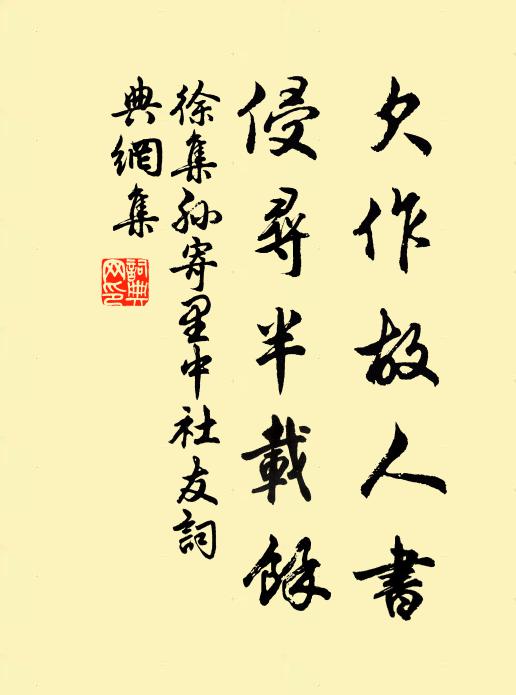 欠作故人書
侵尋半載餘
徐集孫寄里中社友詞
典網集
詞典
网印